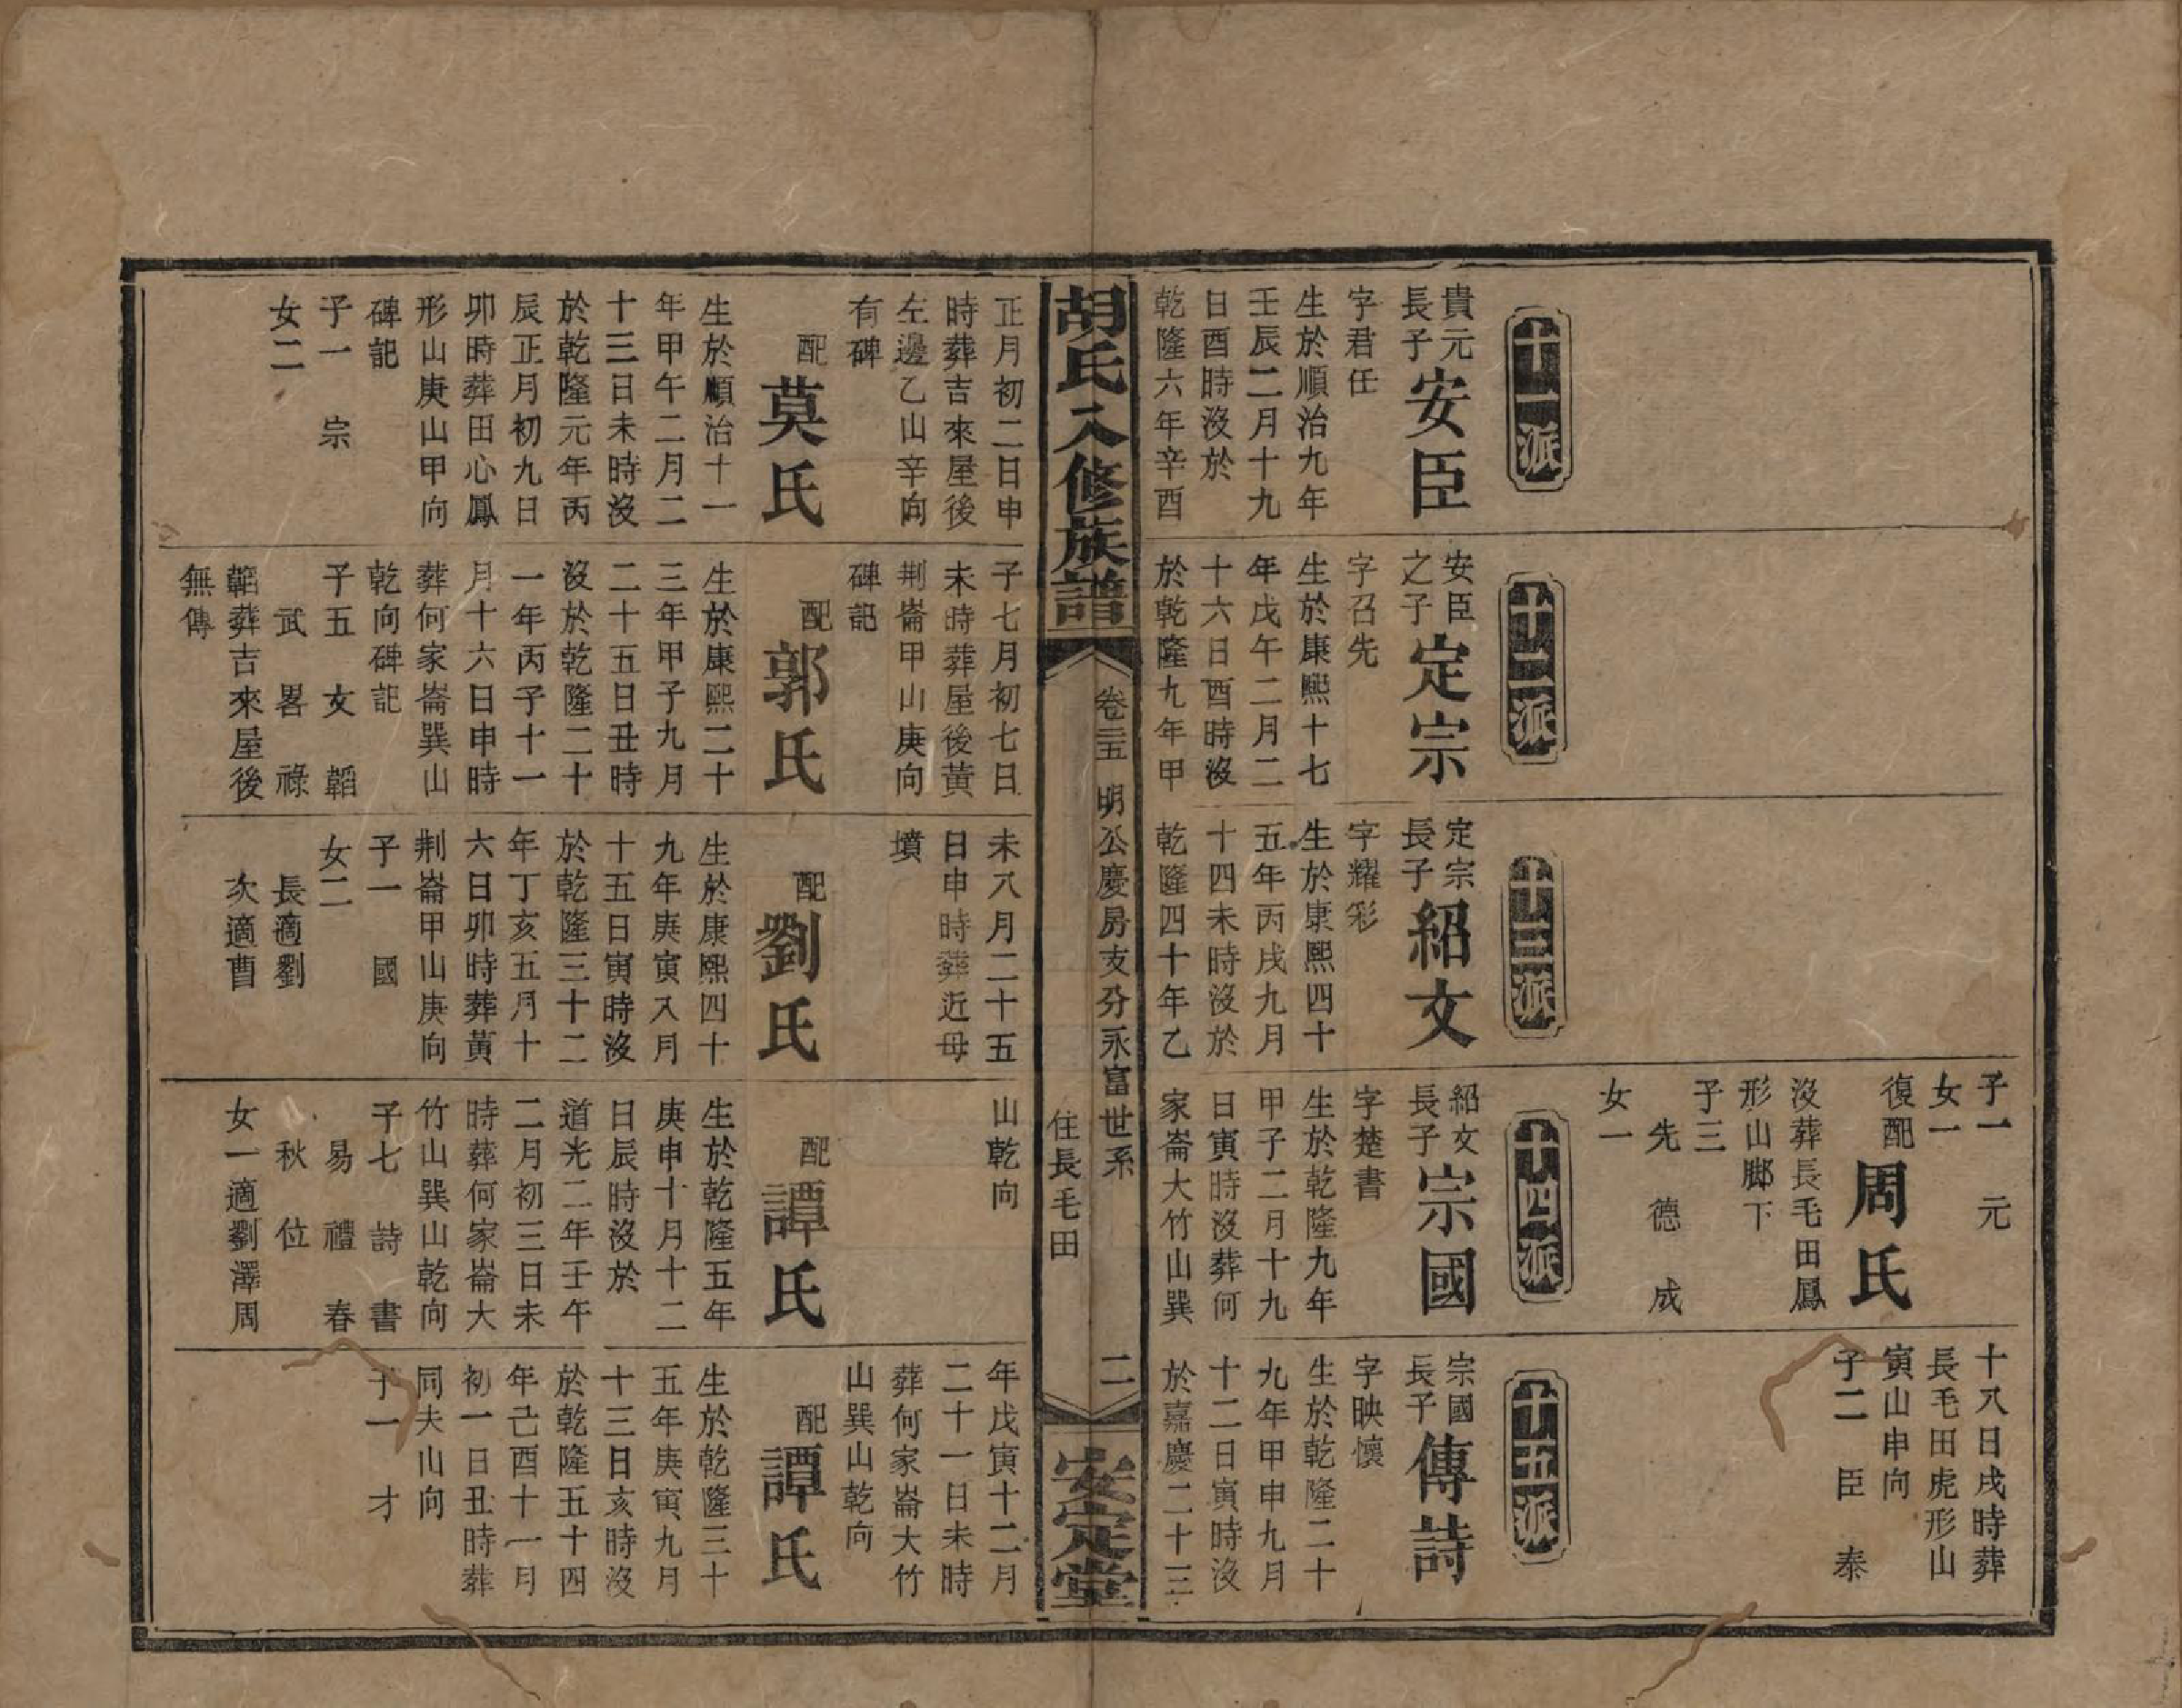 十一派
貴元
長子
安臣
字君任
生於順治九年
壬辰二月十九
日酉時沒於
乾隆六年辛酉
十二派
安臣
之子
定宗
字召先
生於康熙十七
年戊午二月二
十六日酉時沒
於乾隆九年甲
十三派
定宗
長子
紹文
字耀彩
生於康熙四十
五年丙戌九月
十四未時沒於
乾隆四十年乙
子一 元
女一
復配
周氏
沒葬長毛田鳳
形山腳下
子三
先德成
女一
十四派
紹文
長子
宗國
字楚書
生於乾隆九年
甲子二月十九
日寅時沒葬何
家崙大竹山巽
十八日戌時葬
長毛田虎形山
寅山申向
子二 臣泰
十五派
宗國
長子
傳詩
字映懷
生於乾隆二十
九年甲申九月
十二日寅時沒
於嘉慶二十三
胡氏八修族譜
卷二五
明公慶房支分永富世系
住長毛田
二
安定堂
正月初二日申
時葬吉來屋後
左邊乙山辛向
有碑
配
莫氏
生於順治十一
年甲午二月二
十三日未時沒
於乾隆元年丙
辰正月初九日
卯時葬田心鳳
形山庚山甲向
碑記
子一 宗
女二
子七月初七日
未時葬屋後黃
荆崙甲山庚向
碑記
配
郭氏
生於康熙二十
三年甲子九月
二十五日丑時
沒於乾隆二十
一年丙子十一
月十六日申時
葬何家崙巽山
乾向碑記
子五 文韜
武畧祿
韜葬吉來屋後
無傳
未八月二十五
日申時葬近母
墳
配
劉氏
生於康熙四十
九年庚寅八月
十五日寅時沒
於乾隆三十二
年丁亥五月十
六日卯時葬黃
荆崙甲山庚向
子一 國
女二
長適劉
次適曹
山乾向
配
譚氏
生於乾隆五年
庚申十月十二
日辰時沒於
道光二年壬午
二月初三日未
時葬何家崙大
竹山巽山乾向
子七 詩書
易禮春
秋位
女一適劉澤周
年戊寅十二月
二十一日未時
葬何家崙大竹
山巽山乾向
配
譚氏
生於乾隆三十
五年庚寅九月
十三日亥時沒
於乾隆五十四
年己酉十一月
初一日丑時葬
同夫山向
子一 才